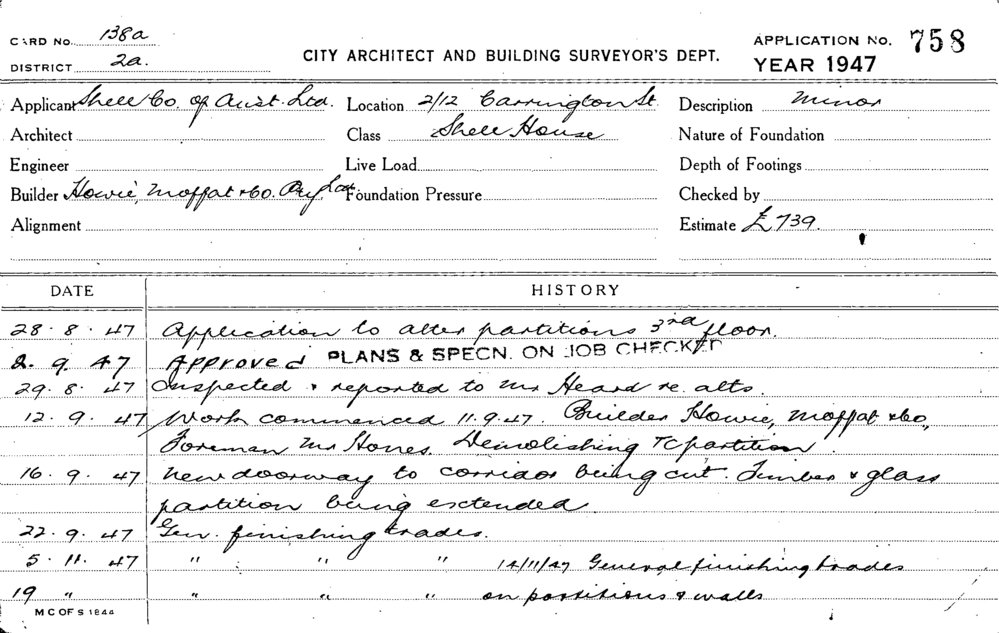 CARD No. 138a
DISTRICT 2a.
CITY ARCHITECT AND BUILDING SURVEYOR'S DEPT.
APPLICATION No. 758
YEAR 1947
Applicant Shell Co. of Aust. Ltd. Location 2/12 Carrington St. Description Minor
Architect Class Shell House Nature of Foundation
Engineer Live Load Depth of Footings
Builder Howie, Moffat & Co. Pty. Ltd. Foundation Pressure Checked by
Alignment Estimate £739.
DATE HISTORY
28.8.47 Application to alter partitions 3rd floor.
2.9.47 Approved PLANS & SPECN. ON JOB CHECKED
29.8.47 Inspected & reported to Mr Heard re. alts.
12.9.47 Work commenced 11.9.47. Builder Howie, Moffat & Co.,
Foreman Mr Hones. Demolishing TC partition.
16.9.47 New doorway to corridor being cut. Timber & glass
partition being extended.
22.9.47 Gen. finishing trades.
5.11.47 " " " 14/11/47 General finishing trades
19 " " " on partitions & walls
M C OF S 1844